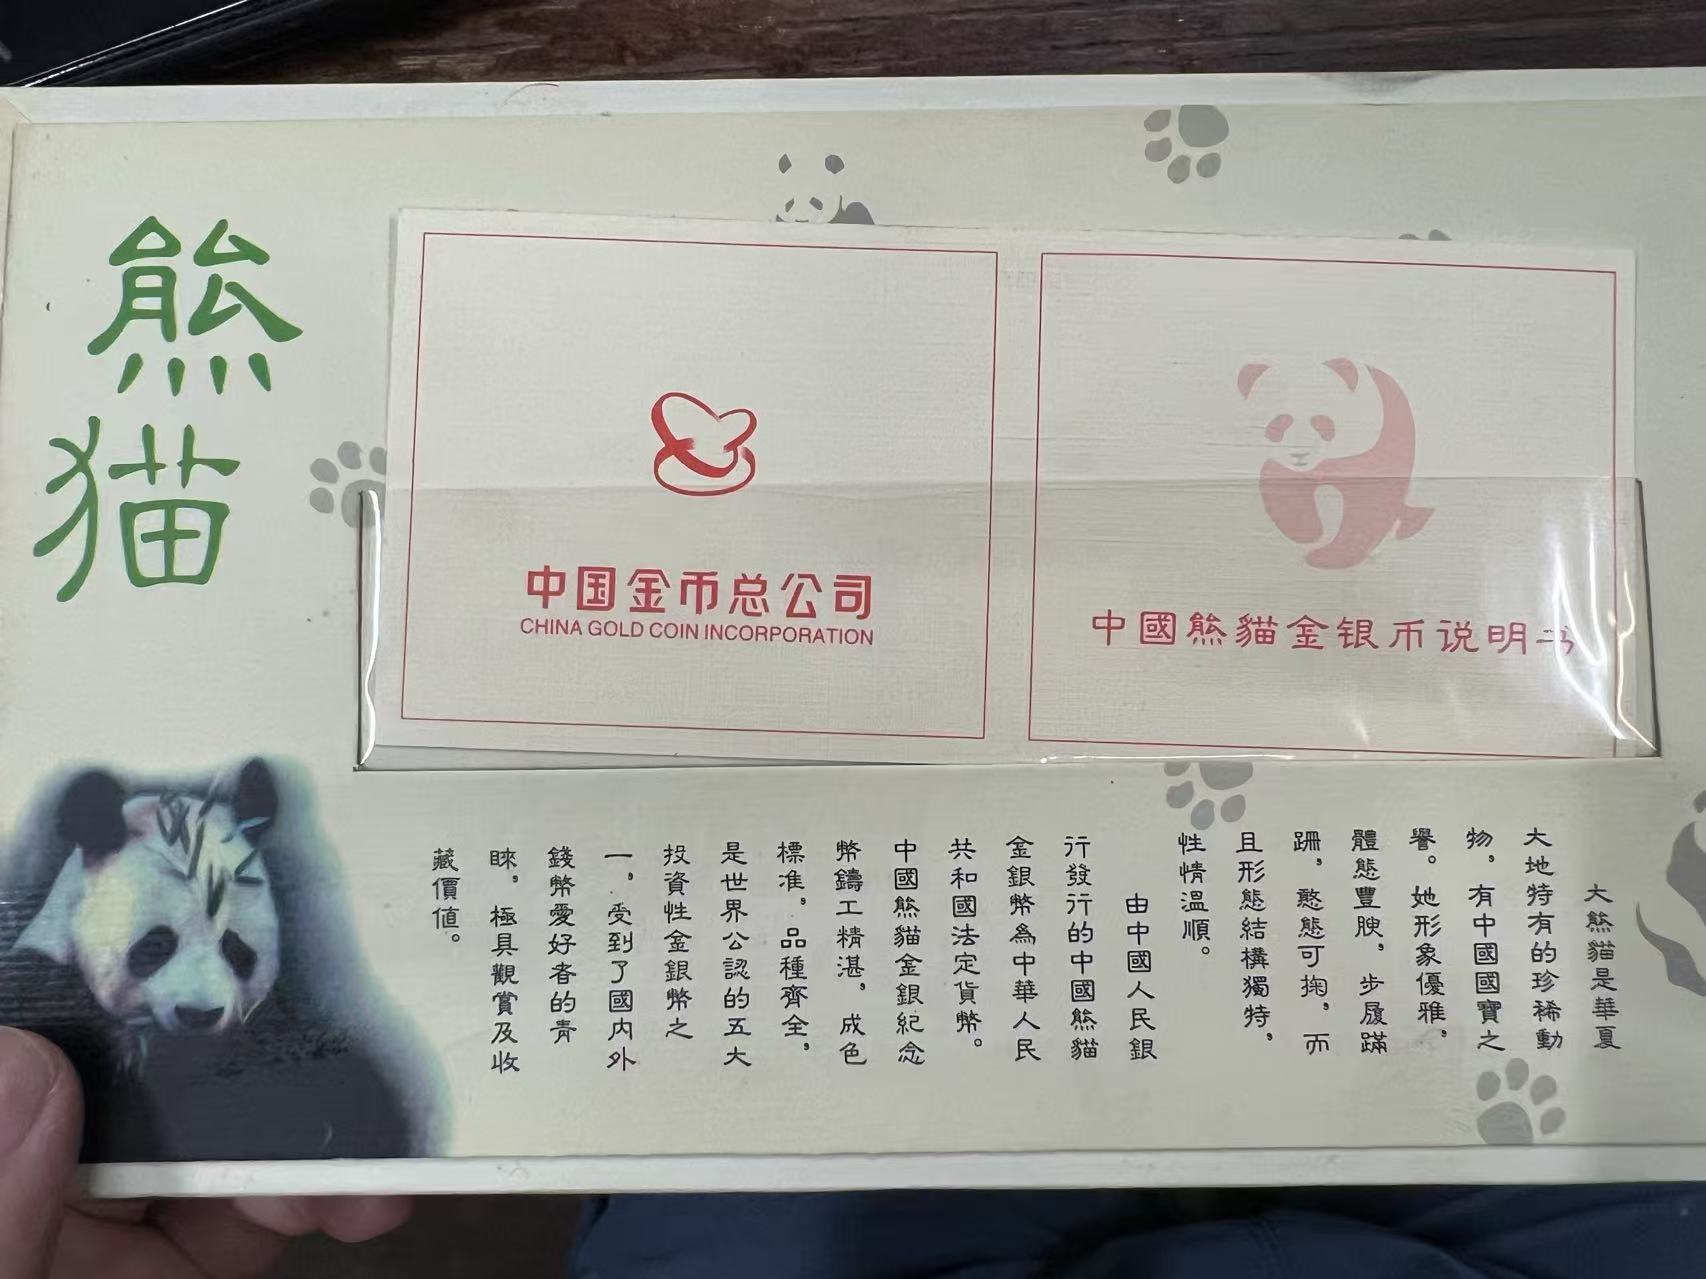 熊
貓
中国金币总公司
CHINA GOLD COIN INCORPORATION
中國熊貓金银币说明书
大熊貓是華夏
大地特有的珍稀動
物，有中國國寶之
譽。她形象優雅，
體態豐腴，步履蹣
跚，憨態可掬，而
且形態結構獨特，
性情溫順。
由中國人民銀
行發行的中國熊貓
金銀幣為中華人民
共和國法定貨幣。
中國熊貓金銀紀念
幣鑄工精湛，成色
標准，品種齊全，
是世界公認的五大
投資性金銀幣之
一，受到了國内外
錢幣愛好者的青
睞，極具觀賞及收
藏價值。